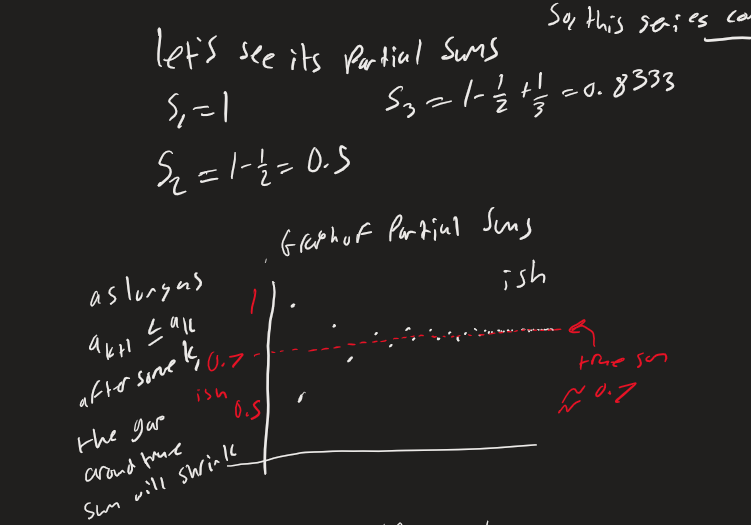 So, this series co
let's see its Partial Sums
S₁ = 1
S₃ = 1 - 1/2 + 1/3 = 0.8333
S₂ = 1 - 1/2 = 0.5
Graph of Partial Sums
ish
as long as
aₖ₊₁ ≤ aₖ
after some k,
the gap
around true
sum will shrink
1
0.7
ish
0.5
true sum
≈ 0.7